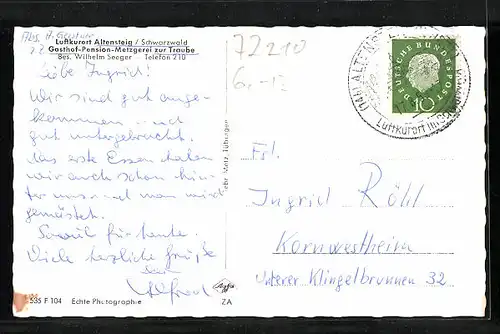 Abs. A.
z. Z.
Luftkurort Altensteig / Schwarzwald
Gasthof-Pension-Metzgerei zur Traube
Bes. Wilhelm Seeger Telefon 210
Liebe Ingrid!
Wir sind gut ange-
kommen und
gut untergebracht.
das erste Essen haben
wir auch schon hin-
ter uns und man wird
gemästet.
Soviel für heute.
Viele herzliche Grüße
dein
Alfred
535 F 104 Echte Photographie
ZA
Gebr. Metz, Tübingen
72210
6,-
(14b) ALTENSTEIG
Luftkurort im
DEUTSCHE BUNDESPOST
10
Frl.
Ingrid Röhl
Kornwestheim
Unterer Klingelbrunnen 32